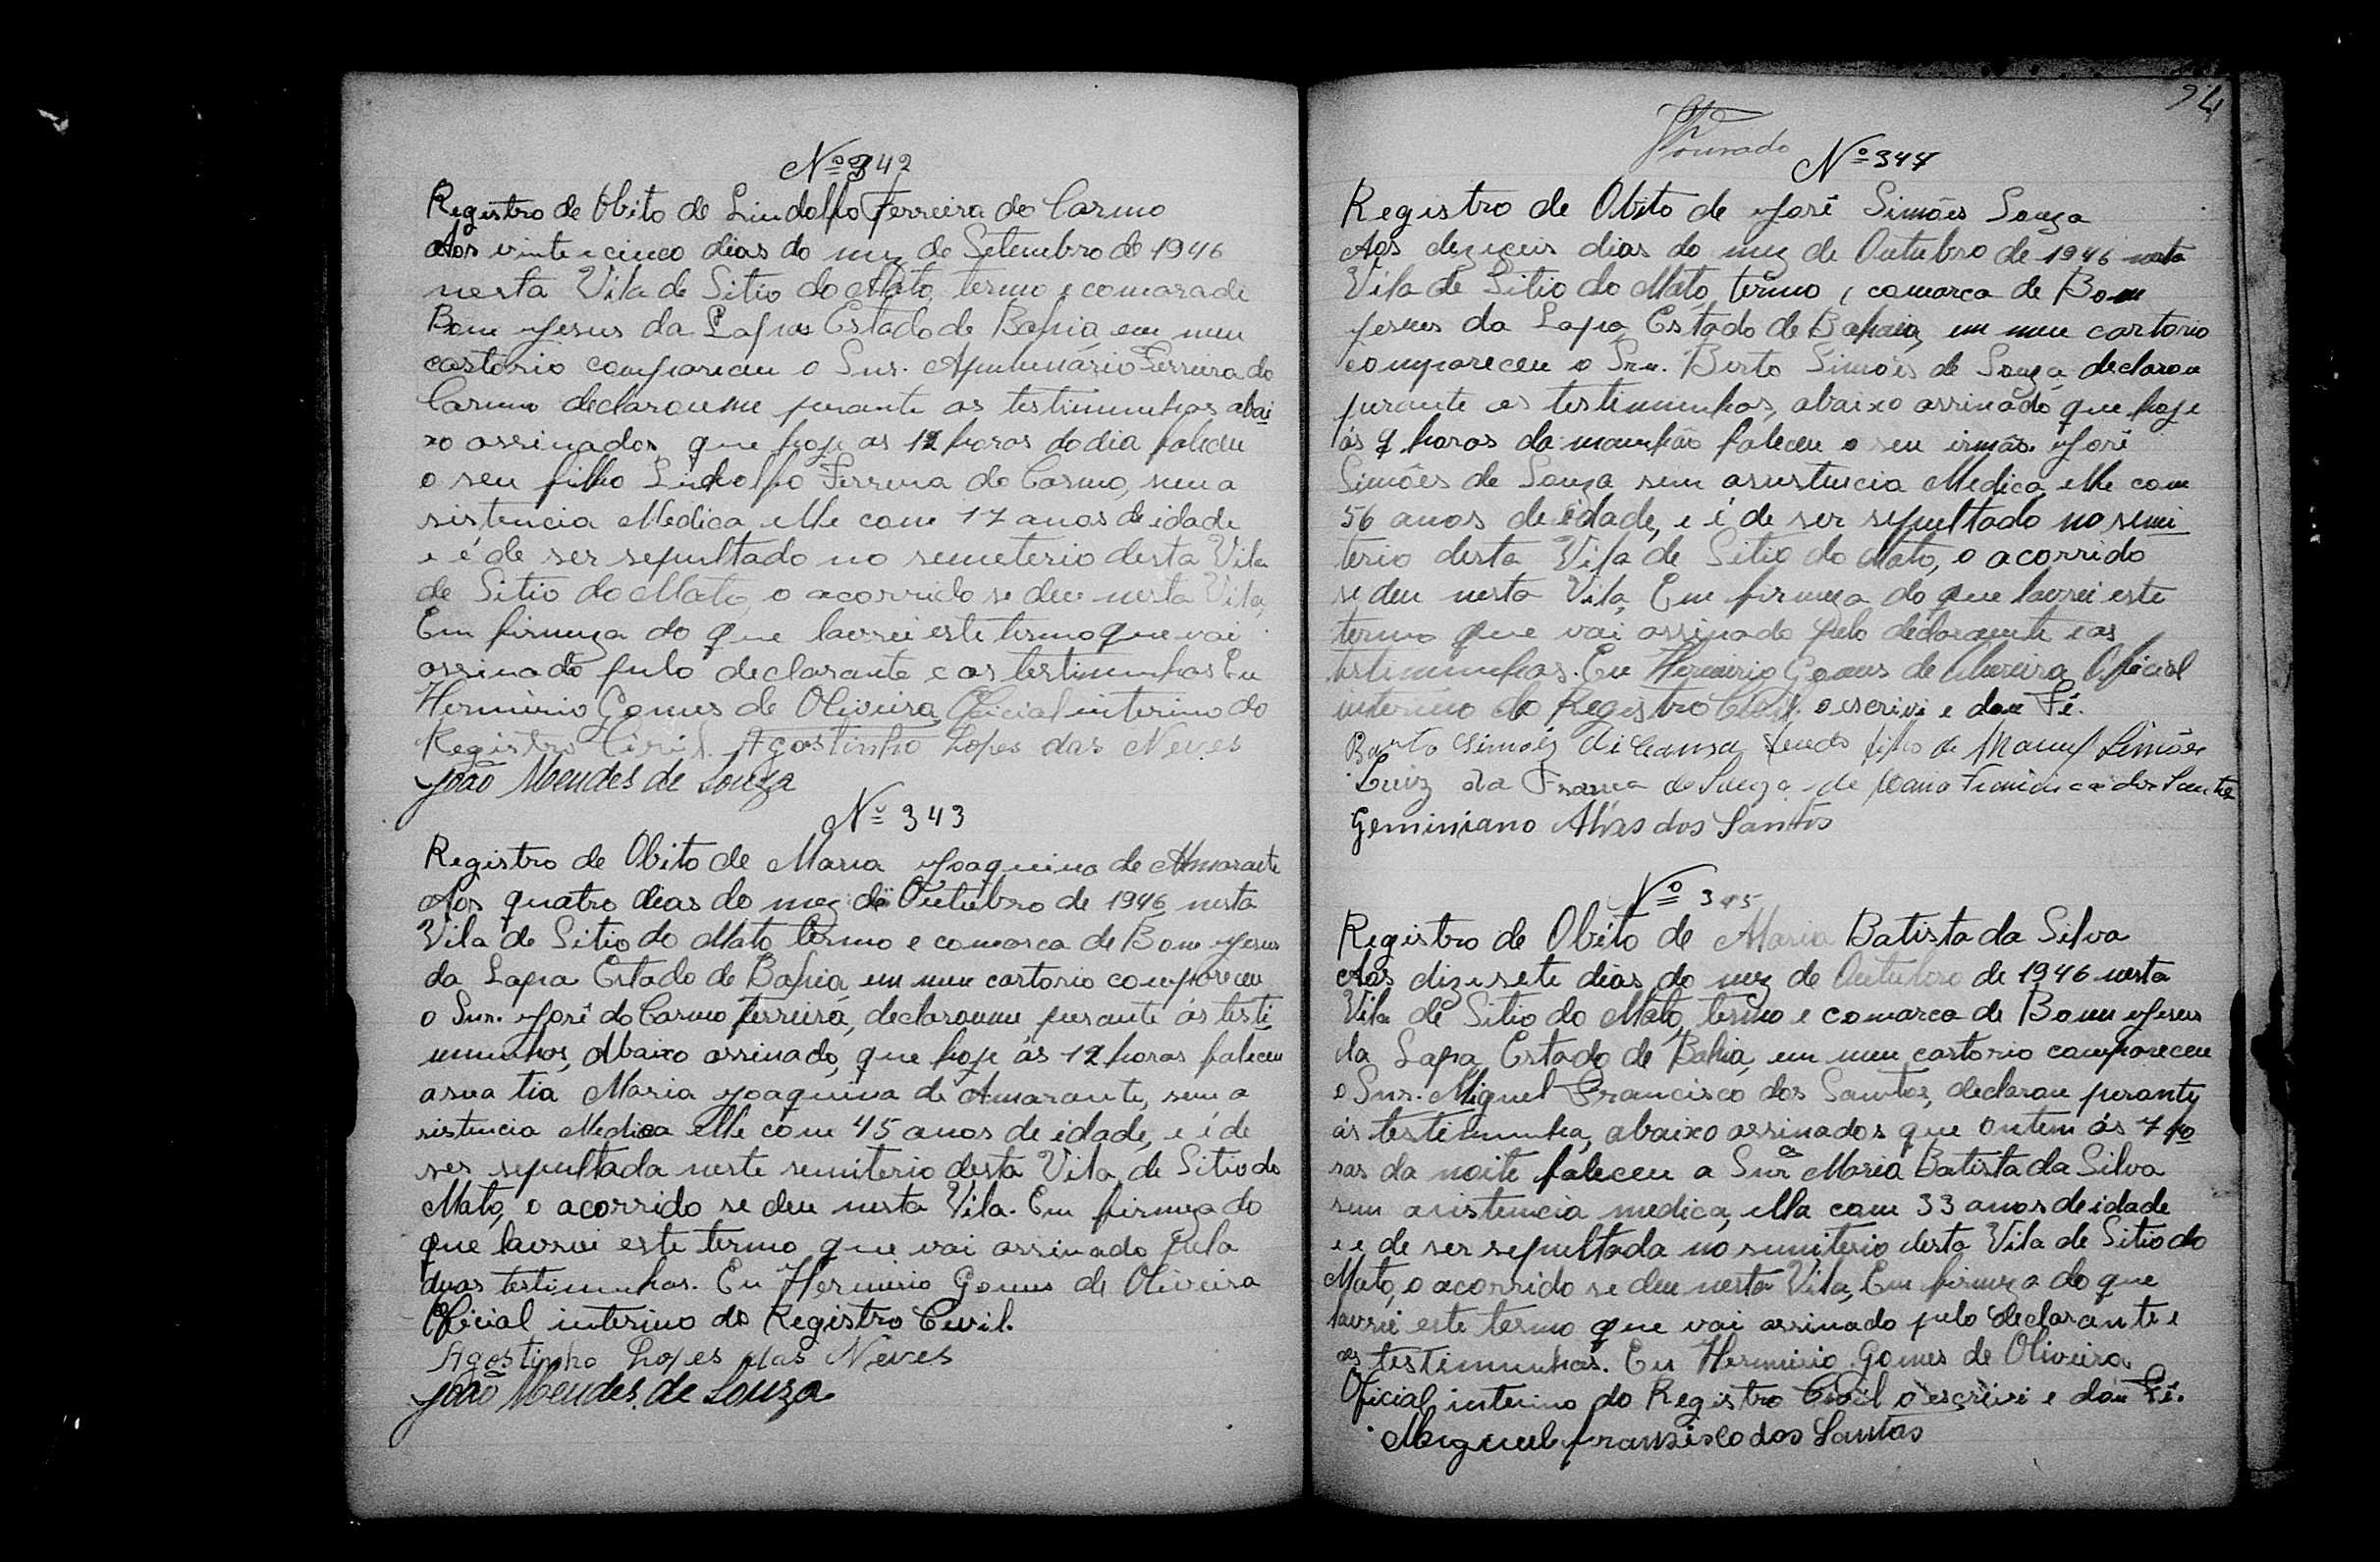 Nº 342
Registro de Obito de Lindolfo Ferreira do Carmo
Aos vinte e cinco dias do mez de Setembro de 1946
nesta Vila de Sitio do Mato, termo e comarca de
Bom Jesus da Lapa Estado de Bahia, em meu
cartorio compareceu o Snr. Ferreira do
Carmo declaroume perante as testimunhas abai
xo assinados que hoje as 12 horas do dia faleceu
o seu filho Lindolfo Ferreira do Carmo, sem a
sistencia Medica elle com 17 anos de idade
e é de ser sepultado no semeterio desta Vila
de Sitio do Mato, o acorrido se deu nesta Vila,
Em firmeza do que lavrei este termo que vai
assinado pelo declarante e as testimunhas Eu
Herminio Gomes de Oliveira Oficial interino do
Registro Civil. Agostinho Lopes das Neves
João Mendes de Souza
Nº 343
Registro de Obito de Maria Joaquina de Amarante
Aos quatro dias do mez de Outubro de 1946 nesta
Vila de Sitio do Mato, termo e comarca de Bom Jesus
da Lapa Estado de Bahia, em meu cartorio compareceu
o Snr. José do Carmo Ferreira, declaroume perante ás testi
munhas, Abaixo assinado, que hoje ás 12 horas faleceu
a sua tia Maria Joaquina de Amarante, sem a
sistencia Medica elle com 45 anos de idade, e é de
ser sepultada neste semiterio desta Vila, de Sitio do
Mato, o acorrido se deu nesta Vila. Em firmeza do
que lavrei este termo que vai assinado pela
duas testimunhas. Eu Herminio Gomes de Oliveira
Oficial interino do Registro Civil.
Agostinho Lopes das Neves
João Mendes de Souza
94
Dourado
Nº 344
Registro de Obito de José Simões Souza
Aos dezeceis dias do mez de Outubro de 1946 nesta
Vila de Sitio do Mato, termo e comarca de Bom
Jesus da Lapa, Estado de Bahaia, em meu cartorio
compareceu o Snr. Berto Simões de Souza, declarou
perante as testimunhas, abaixo assinado que hoje
ás 9 horas da manhão faleceu o seu irmão. José
Simões de Souza sem asistencia Medica, elle com
56 anos de idade, e é de ser sepultado no semi
terio desta Vila de Sitio do Mato, o acorrido
se deu nesta Vila, Em firmeza do que lavrei este
termo que vai assinado pelo declarante e as
testimunhas. Eu Herminio Gomes de Oliveira, Oficial
interino do Registro Civil. o escrivi e dou Fé.
Berto Simoiz di Sousa, sendo filho de Manuel Simões
Luiz da Franca de Souza e de Joana Francisca dos Santos
Geminiano Alves dos Santos
Nº 345
Registro de Obito de Maria Batista da Silva
Aos dizesete dias do mez de Outubro de 1946 nesta
Vila de Sitio do Mato, termo e comarca de Bom Jesus
da Lapa, Estado de Bahia, em meu cartorio compareceu
o Snr. Miguel Francisco dos Santos, declarou perante
ás testimunha, abaixo assinados que ontem ás 7 ho
ras da noite faleceu a Snrª Maria Batista da Silva
sem asistencia medica, ella com 33 anos de idade
e e de ser sepultada no semiterio desta Vila de Sitio do
Mato, o acorrido se deu nesta Vila, Em firmeza do que
lavrei este termo que vai assinado pelo declarante e
as testimunhas. Eu Herminio Gomes de Oliveira
Oficial interino do Registro Civil o escrivi e dou Fé.
Miguel francisco dos Santos